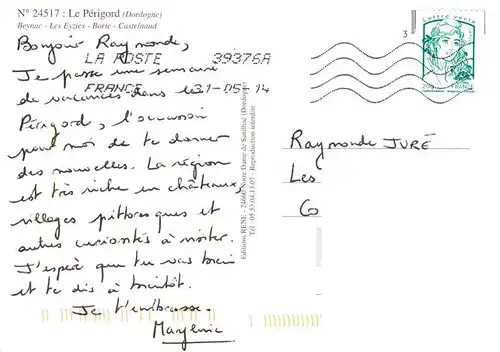 N° 24517 : Le Périgord (Dordogne)
Beynac - Les Eyzies - Borie - Castelnaud
Bonjour Raymonde,
Je passe une semaine
de vacances dans le
Périgord, l'occasion
pour moi de te donner
des nouvelles. La région
est très riche en châteaux,
villages pittoresques et
autres curiosités à visiter.
J'espère que tu vas bien
et te dis à bientôt.
Je t'embrasse.
Marylenie
LA POSTE 39376A
FRANCE 31-05-14
Editions RENE - 24660 Notre Dame de Sanilhac (Dordogne)
Tél : 05.53.04.13.07 - Reproduction interdite
3
Lettre verte
FRANCE
Raymonde JURÉ
Les
Co